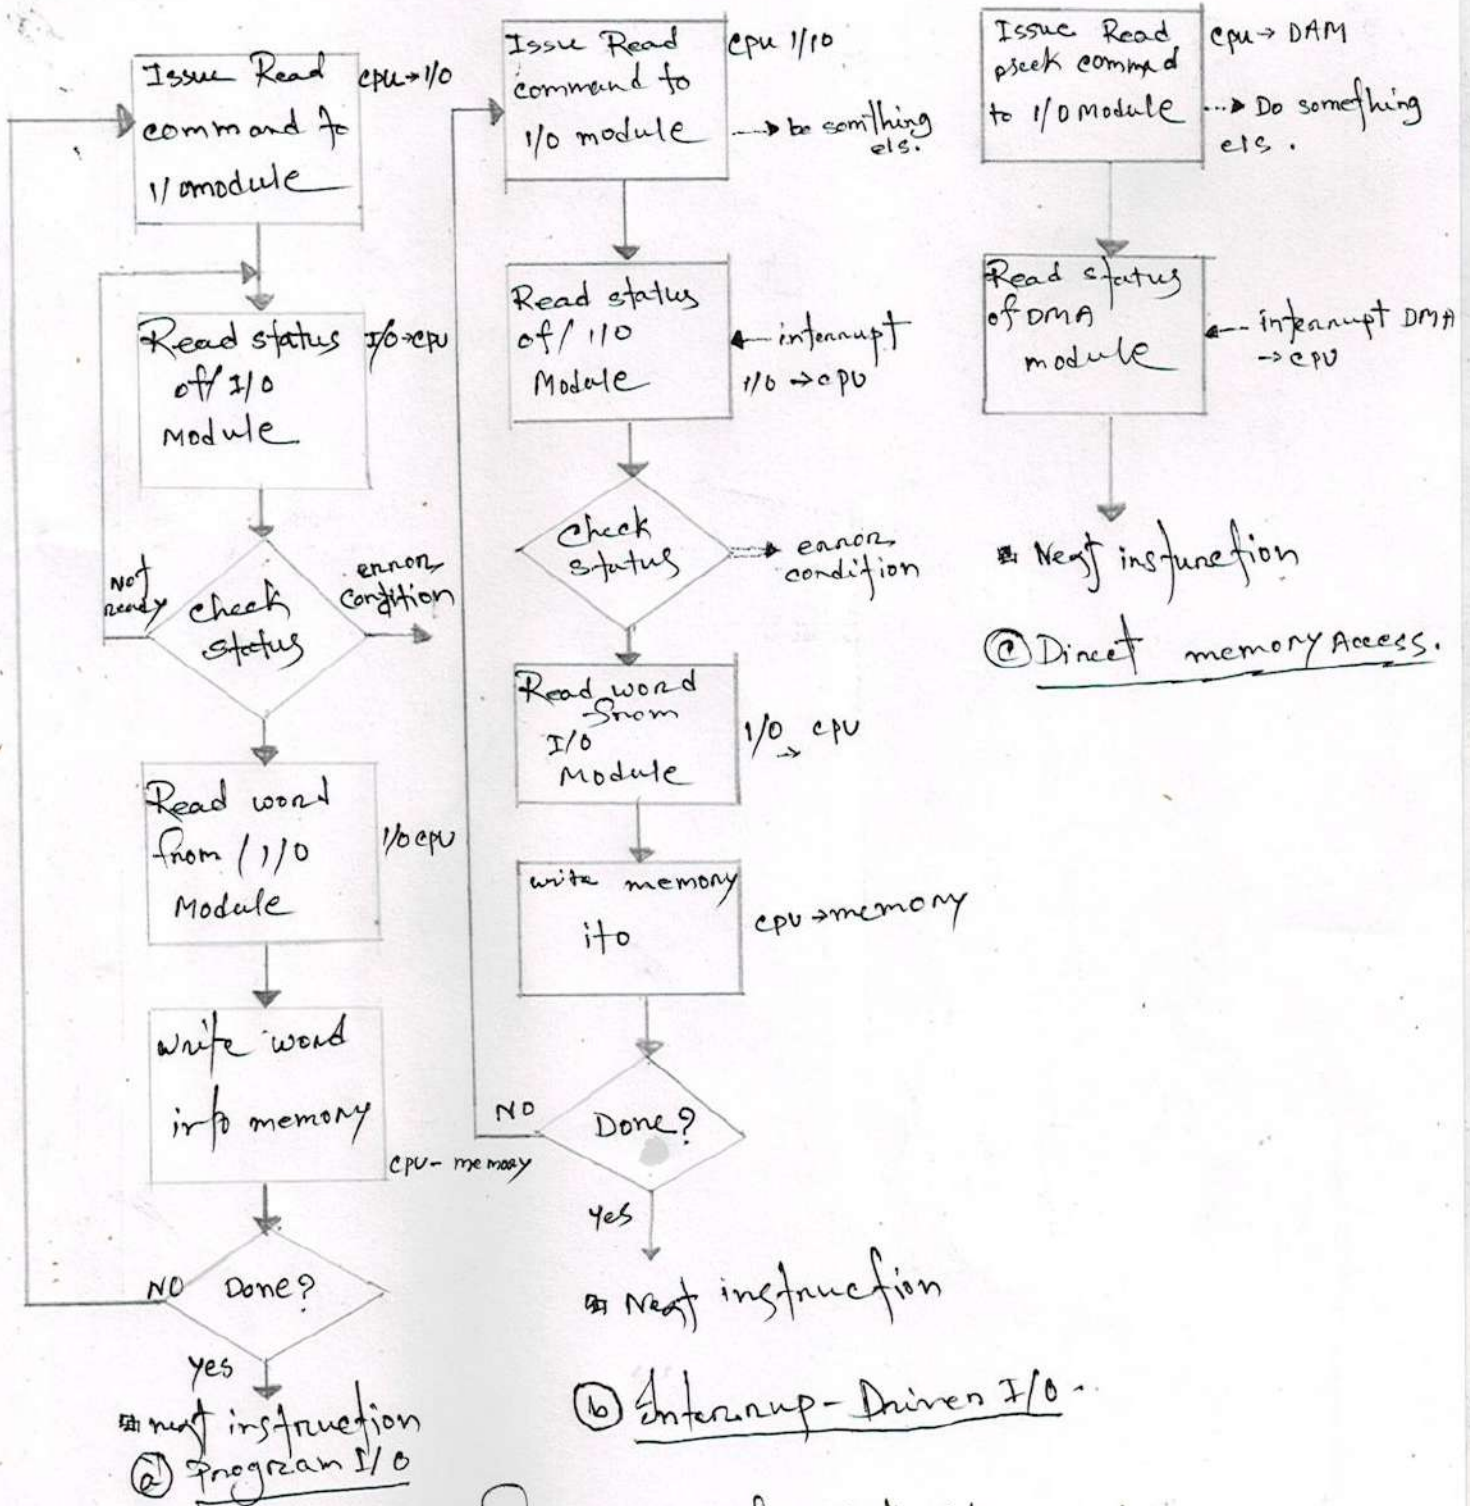 Issue Read
command to
I/O module
cpu→I/O
Read status
of/ I/O
Module
I/O→cpu
Not
ready
check
status
error
condition
Read word
from / I/O
Module
I/O cpu
write word
into memory
CPU- memory
NO
Done?
yes
next instruction
(a) Program I/O
Issue Read
command to
I/O module
cpu I/IO
be somithing
els.
Read status
of/ I/O
Module
interrupt
I/O →cpu
check
status
error
condition
Read word
from
I/O
Module
I/O → cpu
write memory
ito
cpu→memory
NO
Done?
yes
Next instruction
(b) Interrup-Driven I/O
Issue Read
commed
to I/O Module
cpu→ DAM
Do something
els.
Read status
of DMA
module
interrupt DMA
→cpu
Next insfunction
(c) Direct memory Access.